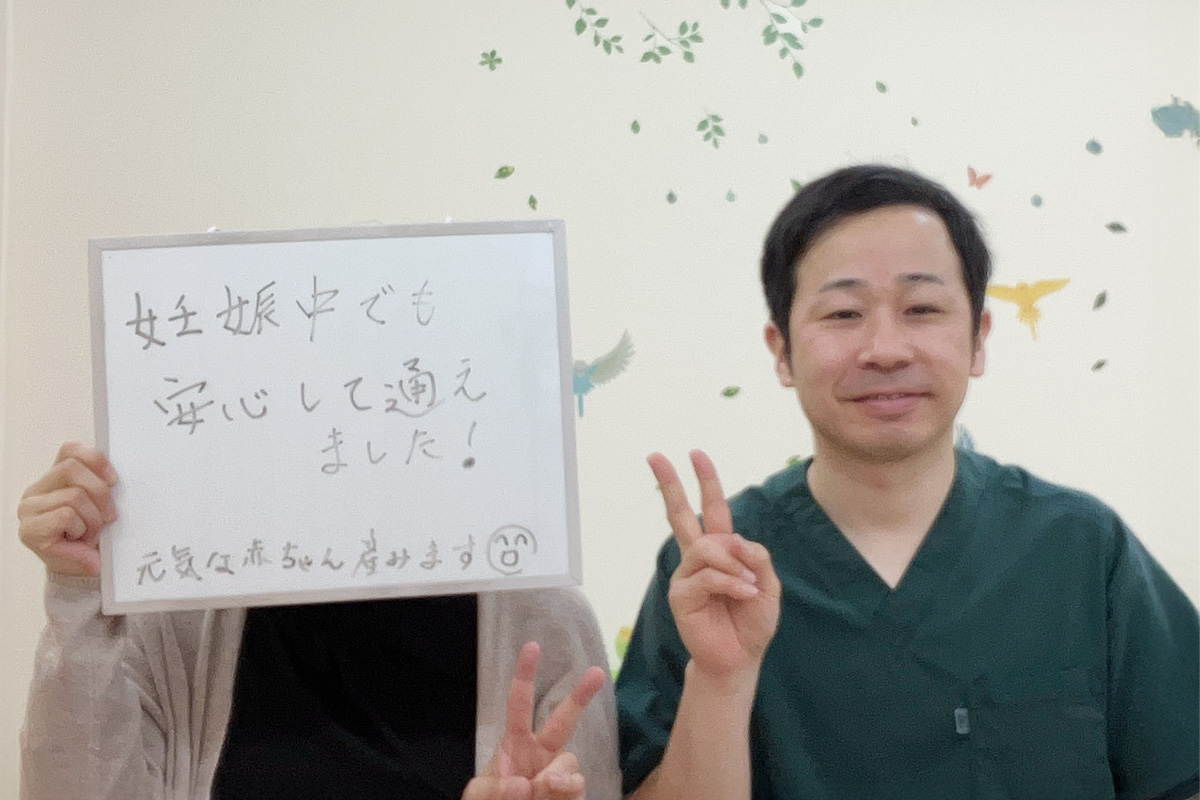 妊娠中でも
安心して通え
ました!
元気な赤ちゃん産みます